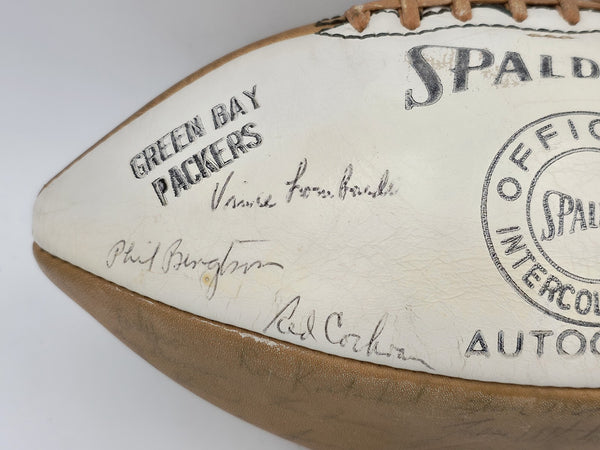 SPALD
GREEN BAY
PACKERS
Vince Lombardi
Phil Bengtson
Red Cochran
OFFIC
SPAL
INTERCOL
AUTOG